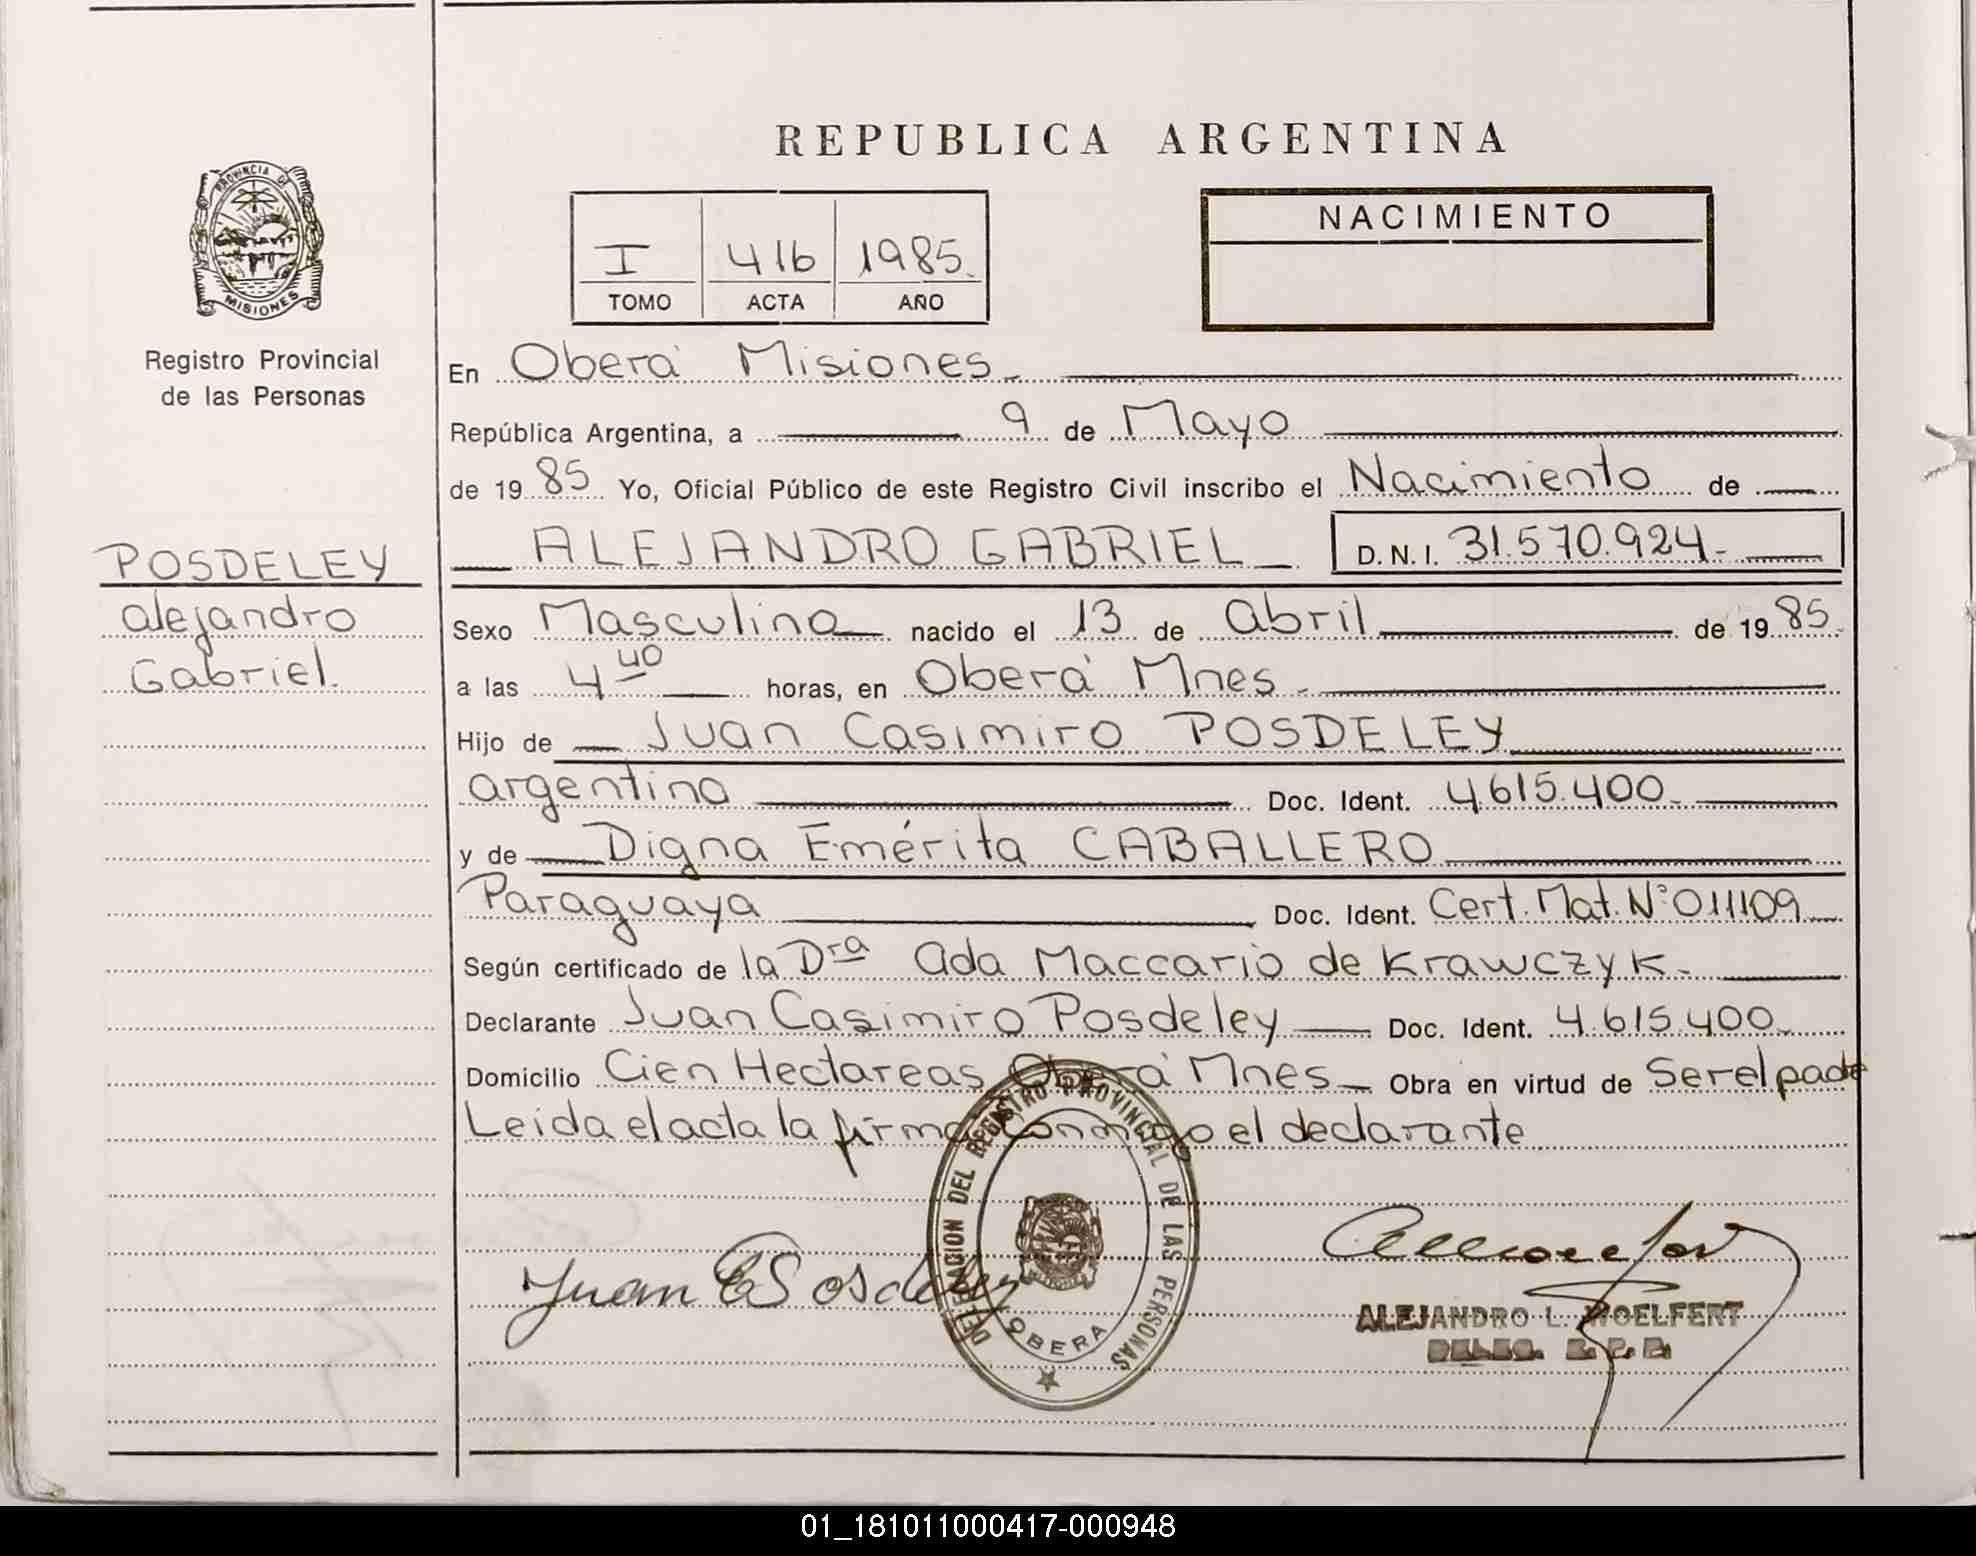 REPUBLICA ARGENTINA
PROVINCIA DE
MISIONES
Registro Provincial
de las Personas
I 416 1985.
TOMO ACTA AÑO
NACIMIENTO
En Oberá Misiones
República Argentina, a 9 de Mayo
de 1985 Yo, Oficial Público de este Registro Civil inscribo el Nacimiento de
ALEJANDRO GABRIEL D.N.I. 31.570.924
POSDELEY
Alejandro
Gabriel.
Sexo Masculino nacido el 13 de Abril de 1985
a las 4 40 horas, en Oberá Mnes.
Hijo de Juan Casimiro POSDELEY
Argentino Doc. Ident. 4.615.400
y de Digna Emérita CABALLERO
Paraguaya Doc. Ident. Cert. Mat. Nº 011109
Según certificado de la Dra Ada Maccario de Krawczyk.
Declarante Juan Casimiro Posdeley Doc. Ident. 4.615.400
Domicilio Cien Hectareas Oberá Mnes Obra en virtud de Ser el padre
Leida el acta la firma conmigo el declarante
DELEGACION DEL REGISTRO PROVINCIAL DE LAS PERSONAS
OBERA
Juan C Posdeley
ALEJANDRO L. WOELFERT
DELEG. R. P. P.
01_181011000417-000948